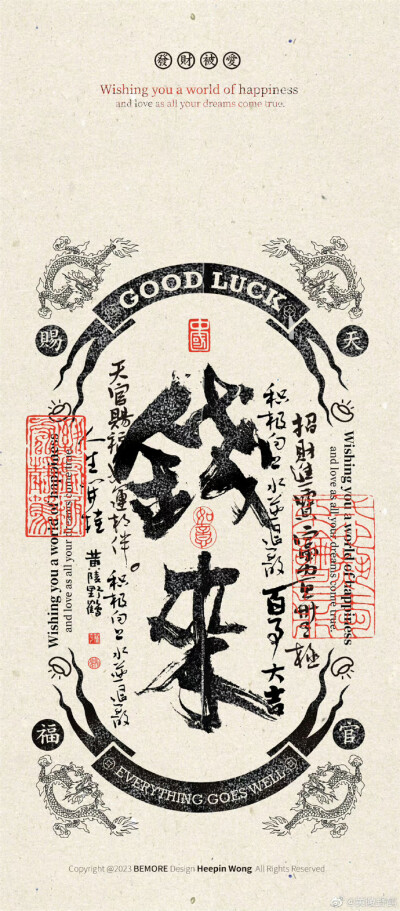 發財被愛
Wishing you a world of happiness
and love as all your dreams come true.
GOOD LUCK
天
官
賜
福
中國
錢來
如意
招財進寶
積極向上 水逆退散 百事大吉
天官賜福
積極向上 水逆退散
人生開掛
黃陵野鶴
Wishing you a world of happiness
and love as all your dreams come true.
Wishing you a world of happiness
and love as all your dreams come true.
EVERYTHING GOES WELL
Copyright @2023 BEMORE Design Heepin Wong All Rights Reserved